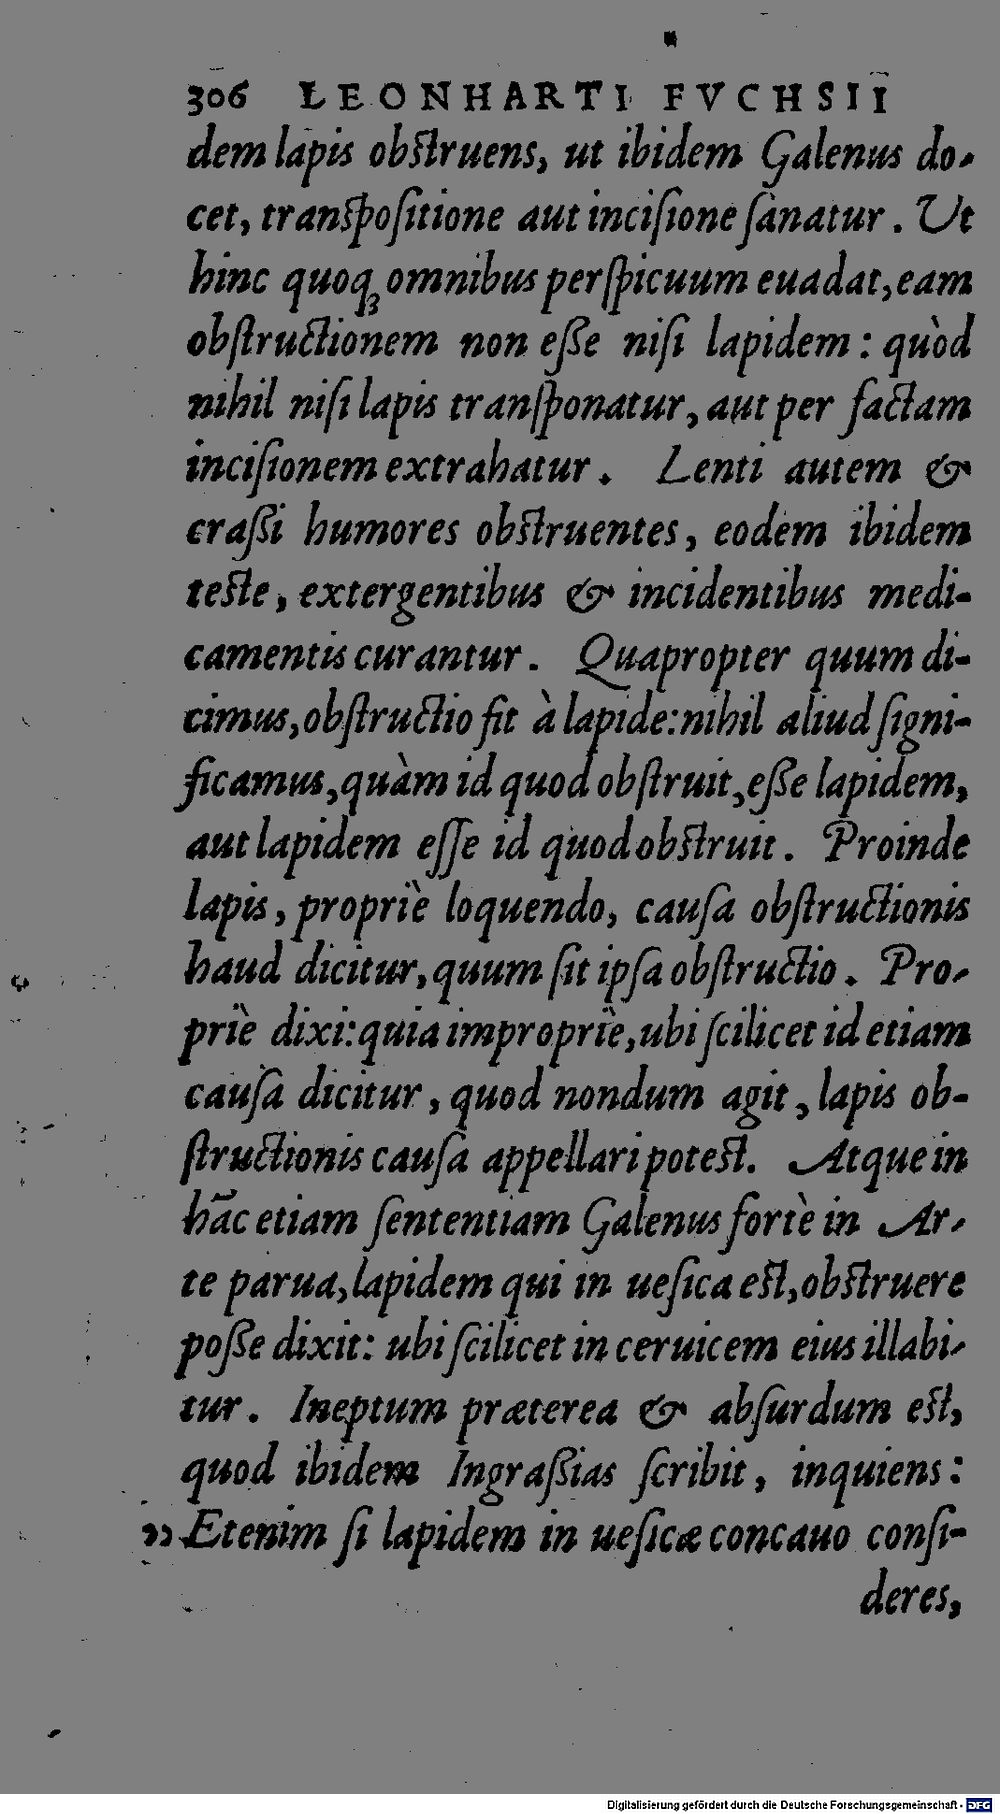 306 LEONHARTI FVCHSII
dem lapis obſtruens, ut ibidem Galenus do-
cet, tranſpoſitione aut inciſione ſanatur. Ut
hinc quoqꝫ omnibus perſpicuum euadat, eam
obſtructionem non eſſe niſi lapidem: quòd
nihil niſi lapis tranſponatur, aut per factam
inciſionem extrahatur. Lenti autem &
craßi humores obſtruentes, eodem ibidem
teſte, extergentibus & incidentibus medi-
camentis curantur. Quapropter quum di-
cimus, obſtructio fit à lapide: nihil aliud ſigni-
ficamus, quàm id quod obſtruit, eße lapidem,
aut lapidem eſſe id quod obſtruit. Proinde
lapis, propriè loquendo, cauſa obſtructionis
haud dicitur, quum ſit ipſa obſtructio. Pro-
priè dixi: quia impropriè, ubi ſcilicet id etiam
cauſa dicitur, quod nondum agit, lapis ob-
ſtructionis cauſa appellari poteſt. Atque in
hāc etiam ſententiam Galenus fortè in Ar-
te parua, lapidem qui in ueſica eſt, obſtruere
poße dixit: ubi ſcilicet in ceruicem eius illabi-
tur. Ineptum præterea & abſurdum eſt,
quod ibidem Ingraßias ſcribit, inquiens:
„ Etenim ſi lapidem in ueſicæ concauo conſi-
deres,
Digitalisierung gefördert durch die Deutsche Forschungsgemeinschaft - DFG